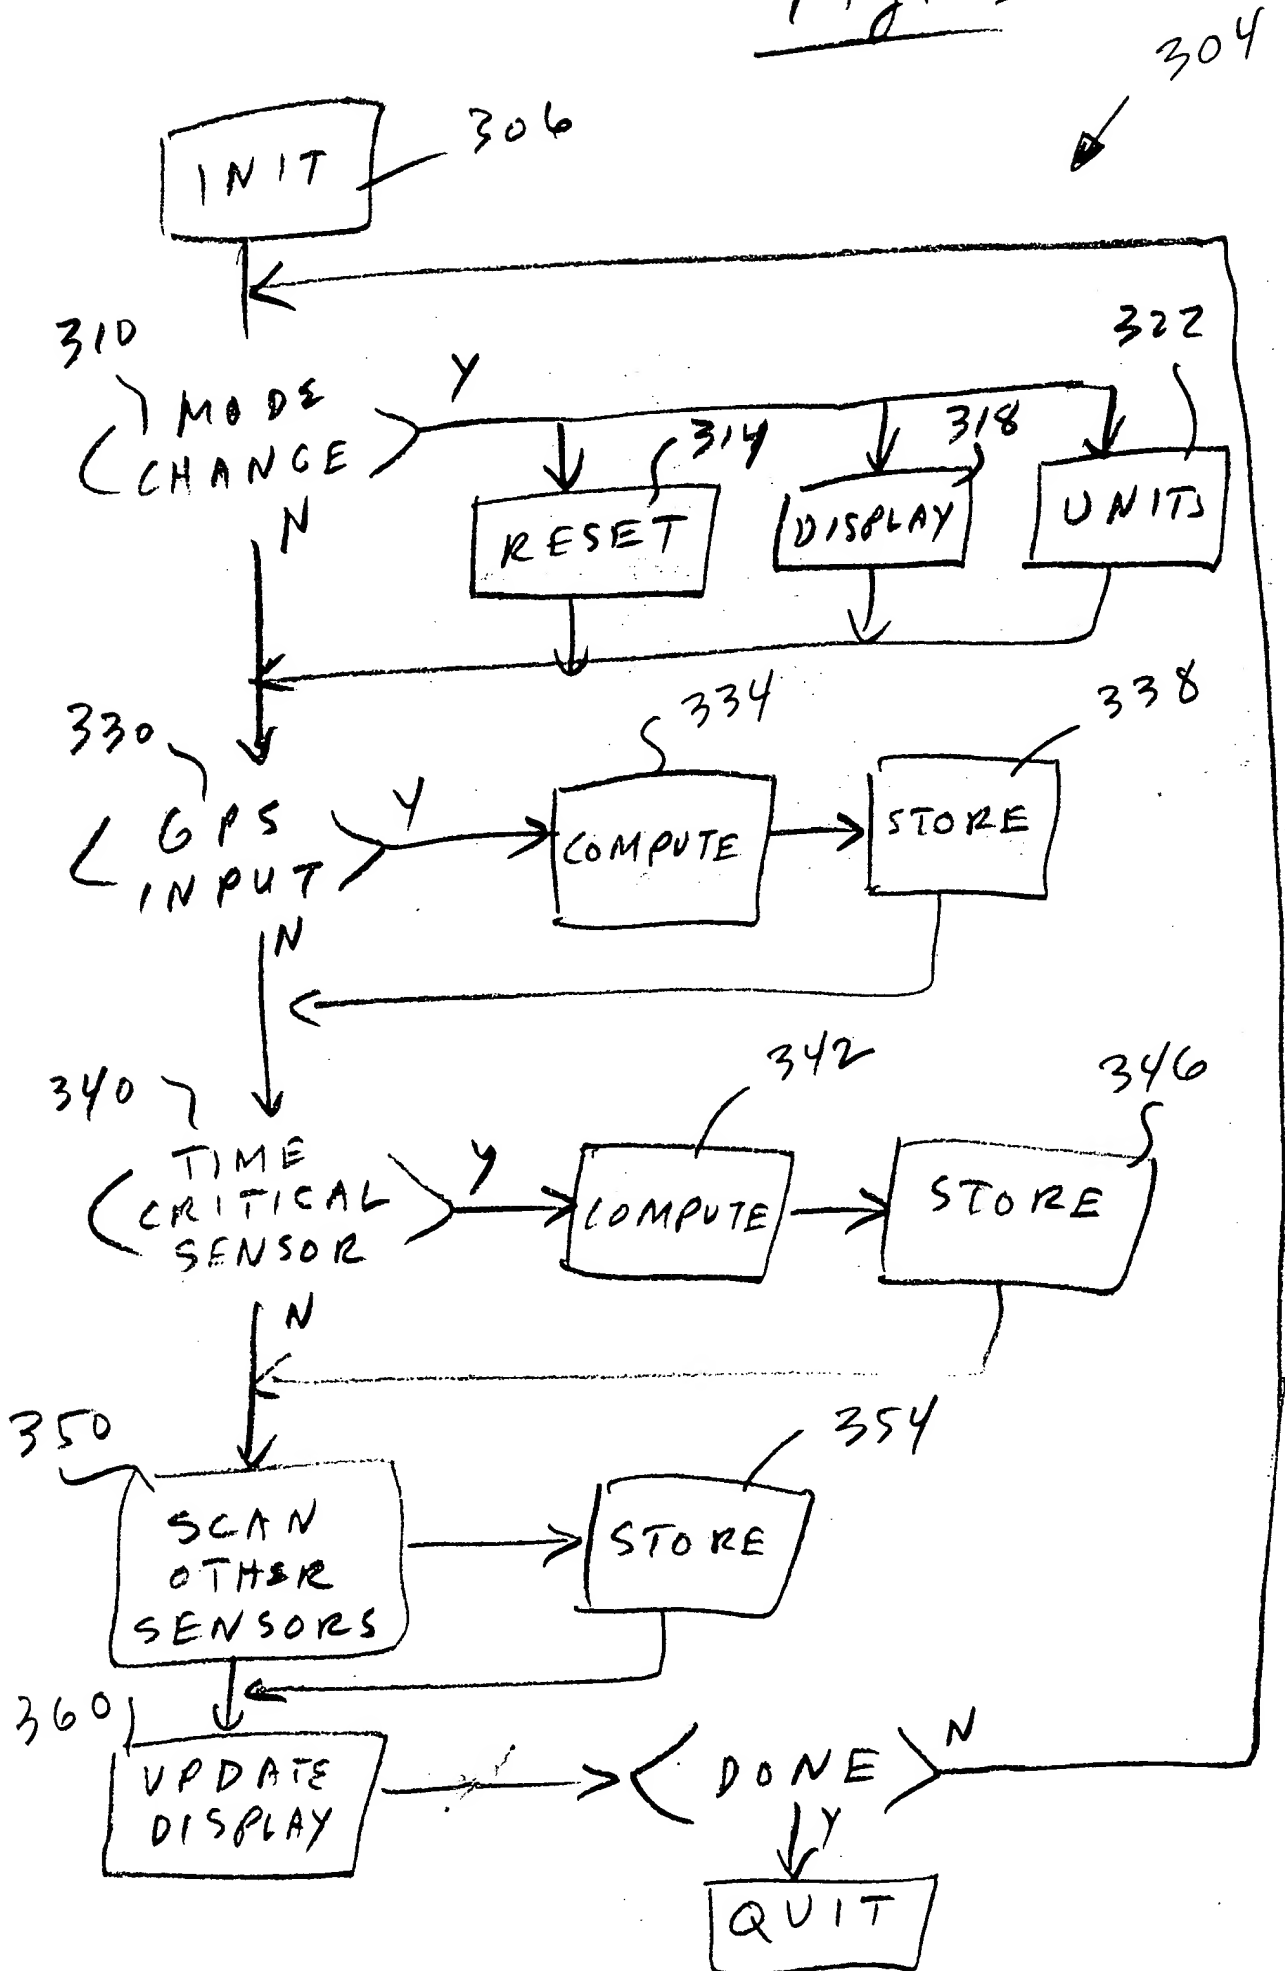 304
306
INIT
310
MODE
CHANGE
Y
N
322
314
318
RESET
DISPLAY
UNITS
330
GPS
INPUT
Y
N
334
COMPUTE
338
STORE
340
TIME
CRITICAL
SENSOR
Y
N
342
COMPUTE
346
STORE
350
SCAN
OTHER
SENSORS
354
STORE
360
UPDATE
DISPLAY
DONE
N
Y
QUIT